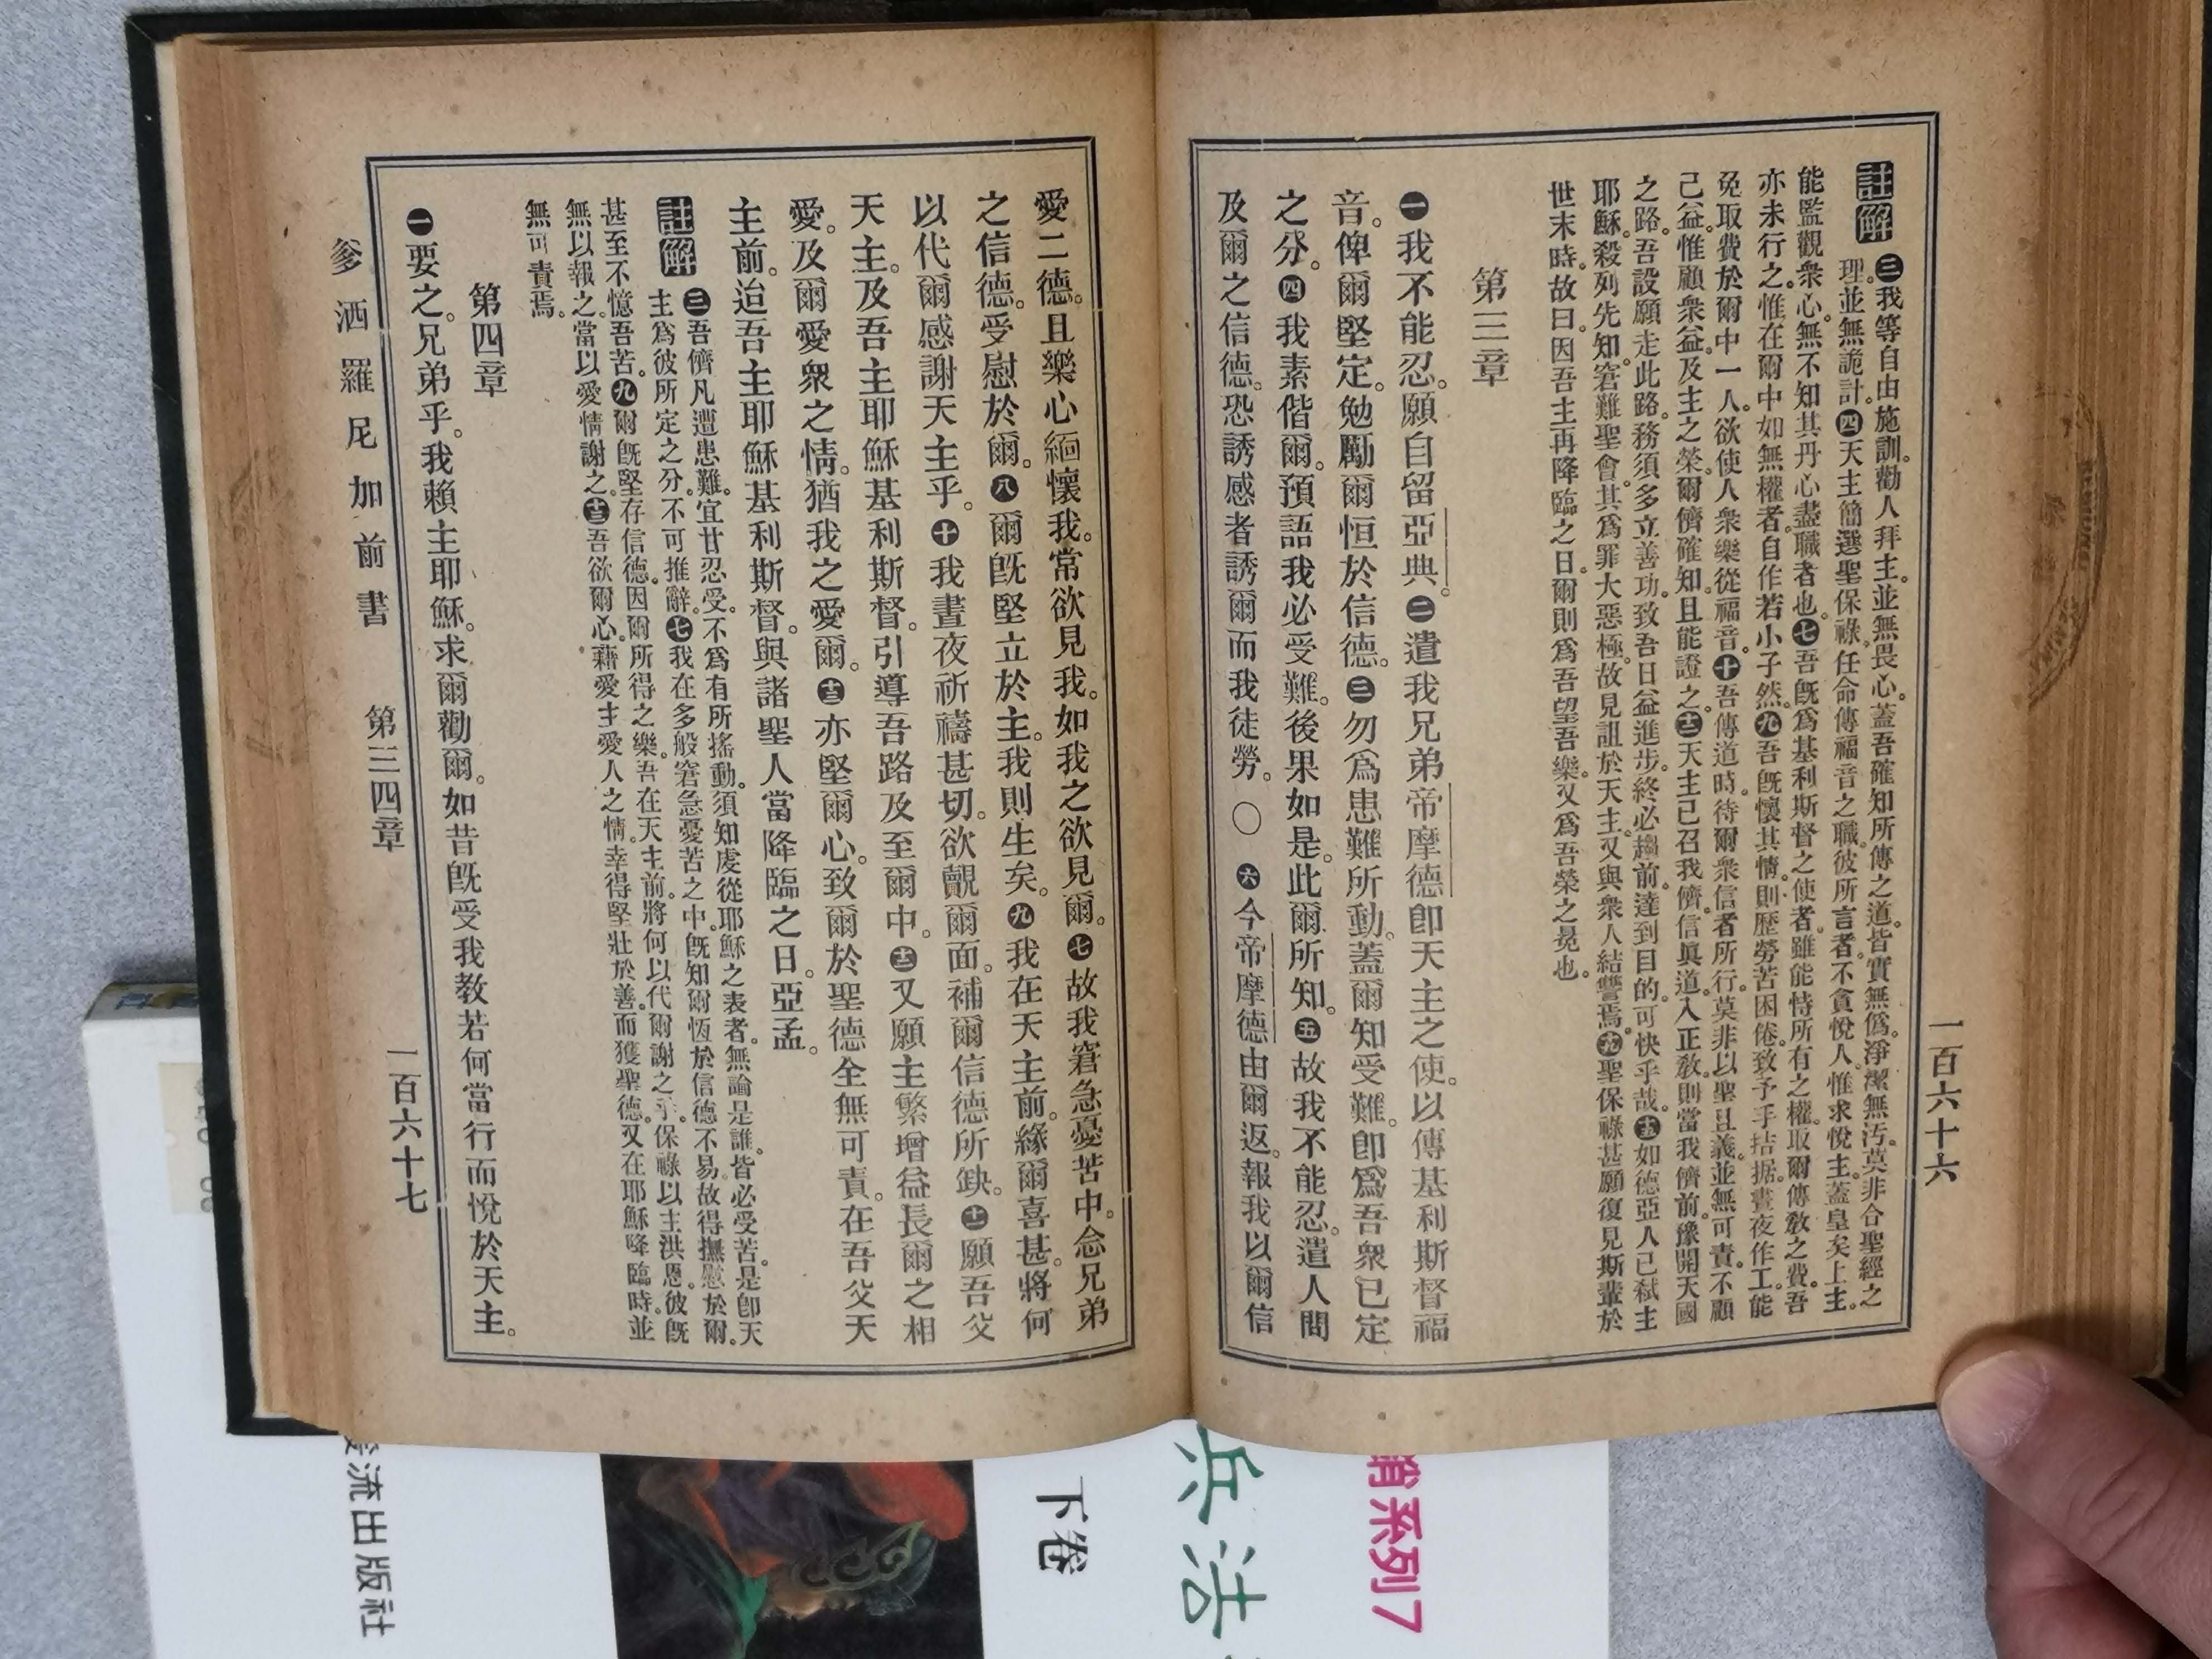 一百六十六
註解
三我等自由施訓。勸人拜主。並無畏心。蓋吾確知所傳之道。皆實無僞。淨潔無汚。莫非合聖經之
理。並無詭計。四天主簡選聖保祿。任命傳福音之職。彼所言者。不貪悅人。惟求悅主。蓋皇矣上主。
能監觀衆心。無不知其丹心盡職者也。七吾旣爲基利斯督之使者。雖能恃所有之權。取爾傳敎之費。吾
亦未行之。惟在爾中如無權者。自作若小子然。九吾旣懷其情。則歷勞苦困倦。致予手拮据。晝夜作工。能
免取費於爾中一人。欲使人衆樂從福音。十吾傳道時。待爾衆信者所行。莫非以聖且義。並無可責。不顧
己益。惟顧衆益。及主之榮。爾儕確知。且能證之。十二天主已召我儕。信眞道。入正敎。則當我儕前。豫開天國
之路。吾設願走此路。務須多立善功。致吾日益進步。終必趨前。達到目的。可快乎哉。十五如德亞人已弒主
耶穌。殺列先知。窘難聖會。其爲罪大惡極。故見詛於天主。又與衆人結讐焉。十九聖保祿甚願復見斯輩於
世末時。故曰。因吾主再降臨之日。爾則爲吾望吾樂。又爲吾榮之冕也。
第三章
一我不能忍。願自留亞典。二遣我兄弟帝摩德卽天主之使。以傳基利斯督福
音。俾爾堅定。勉勵爾恒於信德。三勿爲患難所動。蓋爾知受難。卽爲吾衆已定
之分。四我素偕爾。預語我必受難。後果如是。此爾所知。五故我不能忍。遣人問
及爾之信德。恐誘感者誘爾而我徒勞。〇六今帝摩德由爾返。報我以爾信
愛二德。且樂心緬懷我。常欲見我。如我之欲見爾。七故我窘急憂苦中。念兄弟
之信德。受慰於爾。八爾旣堅立於主。我則生矣。九我在天主前。緣爾喜甚。將何
以代爾感謝天主乎。十我晝夜祈禱甚切。欲覿爾面。補爾信德所缺。十一願吾父
天主。及吾主耶穌基利斯督。引導吾路及至爾中。十二又願主繁增益長爾之相
愛。及爾愛衆之情。猶我之愛爾。十三亦堅爾心。致爾於聖德全無可責。在吾父天
主前。迨吾主耶穌基利斯督。與諸聖人當降臨之日。亞孟。
註解
三吾儕凡遭患難。宜甘忍受。不爲有所搖動。須知虔從耶穌之表者。無論是誰。皆必受苦。是卽天
主爲彼所定之分。不可推辭。七我在多般窘急憂苦之中。旣知爾恆於信德不易。故得撫慰於爾。
甚至不憶吾苦。九爾旣堅存信德。因爾所得之樂。吾在天主前。將何以代爾謝之乎。保祿以主洪恩。彼旣
無以報之。當以愛情謝之。十三吾欲爾心。藉愛主愛人之情。幸得堅壯於善。而獲聖德。又在耶穌降臨時。並
無可責焉。
第四章
一要之。兄弟乎。我賴主耶穌。求爾勸爾。如昔旣受我敎若何當行而悅於天主。
爹洒羅尼加前書 第三四章 一百六十七
流出版社
下卷
兵法
系列7